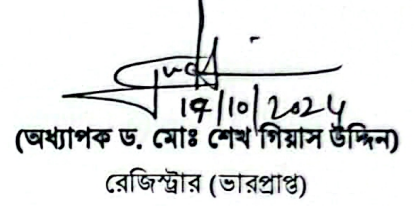 14/10/2024
(অধ্যাপক ড. মোঃ শেখ গিয়াস উদ্দিন)
রেজিস্ট্রার (ভারপ্রাপ্ত)